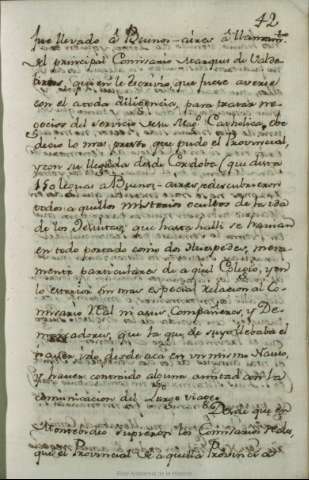 42
fue llevado á Buenos-aires á llamam.to
del principal Comisario Marques de Valde
lirios, quien le decia que fuese averse
con el atoda diligencia, para tratar ne-
gocios del servicio de su Mag.d Catholica, obe
decio lo mas presto que pudo el Provincial,
y con su llegada desde Cordoba (que dista
150 leguas a Buenos-aires, se descubrieron
todos aquellos misterios ocultos de su ida
de los Jesuitas, que hasta halli se havian
en todo portado como dos Huespedes, mera
mente particulares de aquel Colegio, y en
lo exterior sin mas especial relacion al Co-
misario Real ni asus Compañeros, y De-
marcadores, que la que de suyo llevaba el
haver ydo desde acá en un mismo Navio,
y haver contraido alguna amistad con la
comunicacion del largo viage.
Desde que en
Montevideo supieron los Comisarios Reales,
que el Provincial de aquella Provincia
Real Academia de la Historia